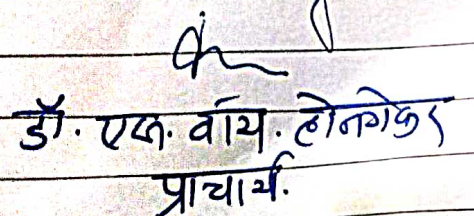 डॉ. एस. वाय. होनगेकर
प्राचार्य.